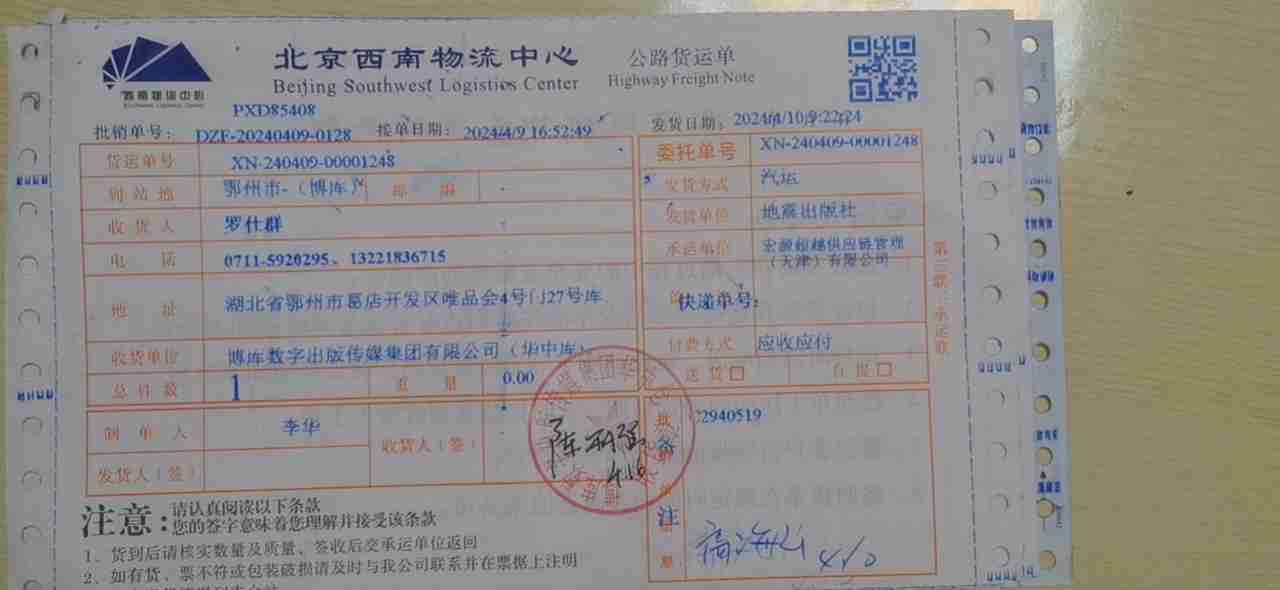 北京西南物流中心
公路货运单
Beijing Southwest Logistics Center
Highway Freight Note
西南物流中心
PXD85408
批销单号: DZF-20240409-0128 接单日期: 2024/4/9 16:52:49 发货日期:
货运单号 XN-240409-00001248 委托单号 XN-240409-00001248
到站地 鄂州市-(博库) 邮 编 发货方式 汽运
收货人 罗仕群 发货单位 地震出版社
电 话 0711-5920295、13221836715 承运单位 宏源超越供应链管理
(天津)有限公司
地 址 湖北省鄂州市葛店开发区唯品会4号门27号库 快递单号:
收货单位 博库数字出版传媒集团有限公司(华中库) 付费方式 应收应付
总件数 1 重 量 0.00 送货□ 自提□
制单人 李华 收货人(签) 批 备 2940519
发货人(签) 注
4.16
4/10
第三联:承运联
注意: 请认真阅读以下条款
您的签字意味着您理解并接受该条款
1、货到后请核实数量及质量、签收后交承运单位返回
2、如有货、票不符或包装破损请及时与我公司联系并在票据上注明